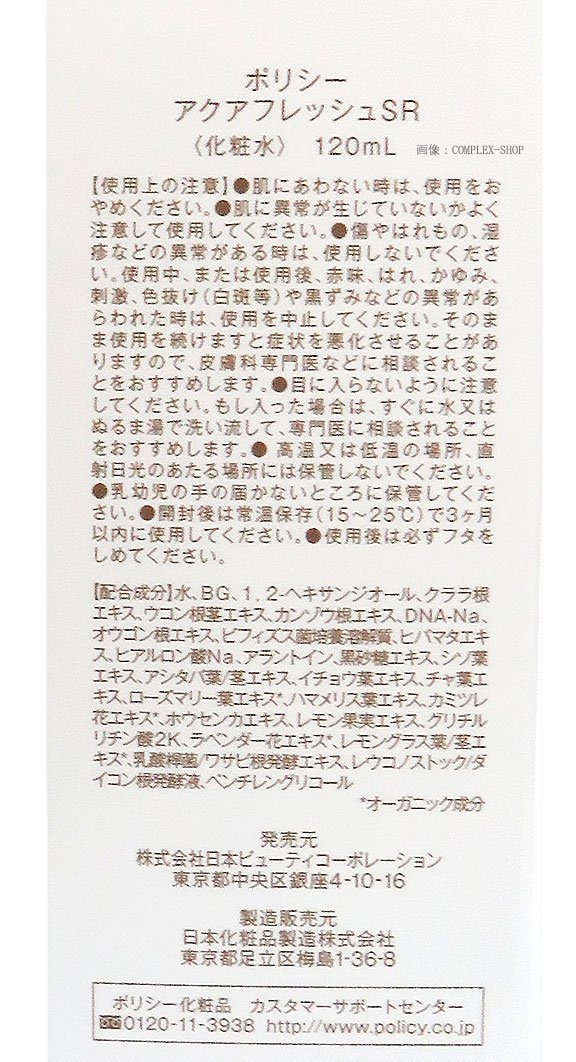 ポリシー
アクアフレッシュSR
〈化粧水〉 120mL 画像：COMPLEX-SHOP
【使用上の注意】●肌にあわない時は、使用をお
やめください。●肌に異常が生じていないかよく
注意して使用してください。●傷やはれもの、湿
疹などの異常がある時は、使用しないでくださ
い。使用中、または使用後、赤味、はれ、かゆみ、
刺激、色抜け(白斑等)や黒ずみなどの異常があ
らわれた時は、使用を中止してください。そのま
ま使用を続けますと症状を悪化させることがあ
りますので、皮膚科専門医などに相談されるこ
とをおすすめします。●目に入らないように注意
してください。もし入った場合は、すぐに水又は
ぬるま湯で洗い流して、専門医に相談されること
をおすすめします。●高温又は低温の場所、直
射日光のあたる場所には保管しないでください。
●乳幼児の手の届かないところに保管してくだ
さい。●開封後は常温保存(15〜25℃)で3ヶ月
以内に使用してください。●使用後は必ずフタを
しめてください。
【配合成分】水、BG、1,2-ヘキサンジオール、クララ根
エキス、ウコン根茎エキス、カンゾウ根エキス、DNA-Na、
オウゴン根エキス、ビフィズス菌培養溶解質、ヒバマタエキ
ス、ヒアルロン酸Na、アラントイン、黒砂糖エキス、シソ葉
エキス、アシタバ葉/茎エキス、イチョウ葉エキス、チャ葉エ
キス、ローズマリー葉エキス*、ハマメリス葉エキス、カミツレ
花エキス*、ホウセンカエキス、レモン果実エキス、グリチル
リチン酸2K、ラベンダー花エキス*、レモングラス葉/茎エ
キス*、乳酸桿菌/ワサビ根発酵エキス、レウコノストック/ダ
イコン根発酵液、ペンチレングリコール
*オーガニック成分
発売元
株式会社日本ビューティコーポレーション
東京都中央区銀座4-10-16
製造販売元
日本化粧品製造株式会社
東京都足立区梅島1-36-8
ポリシー化粧品 カスタマーサポートセンター
0120-11-3938 http://www.policy.co.jp